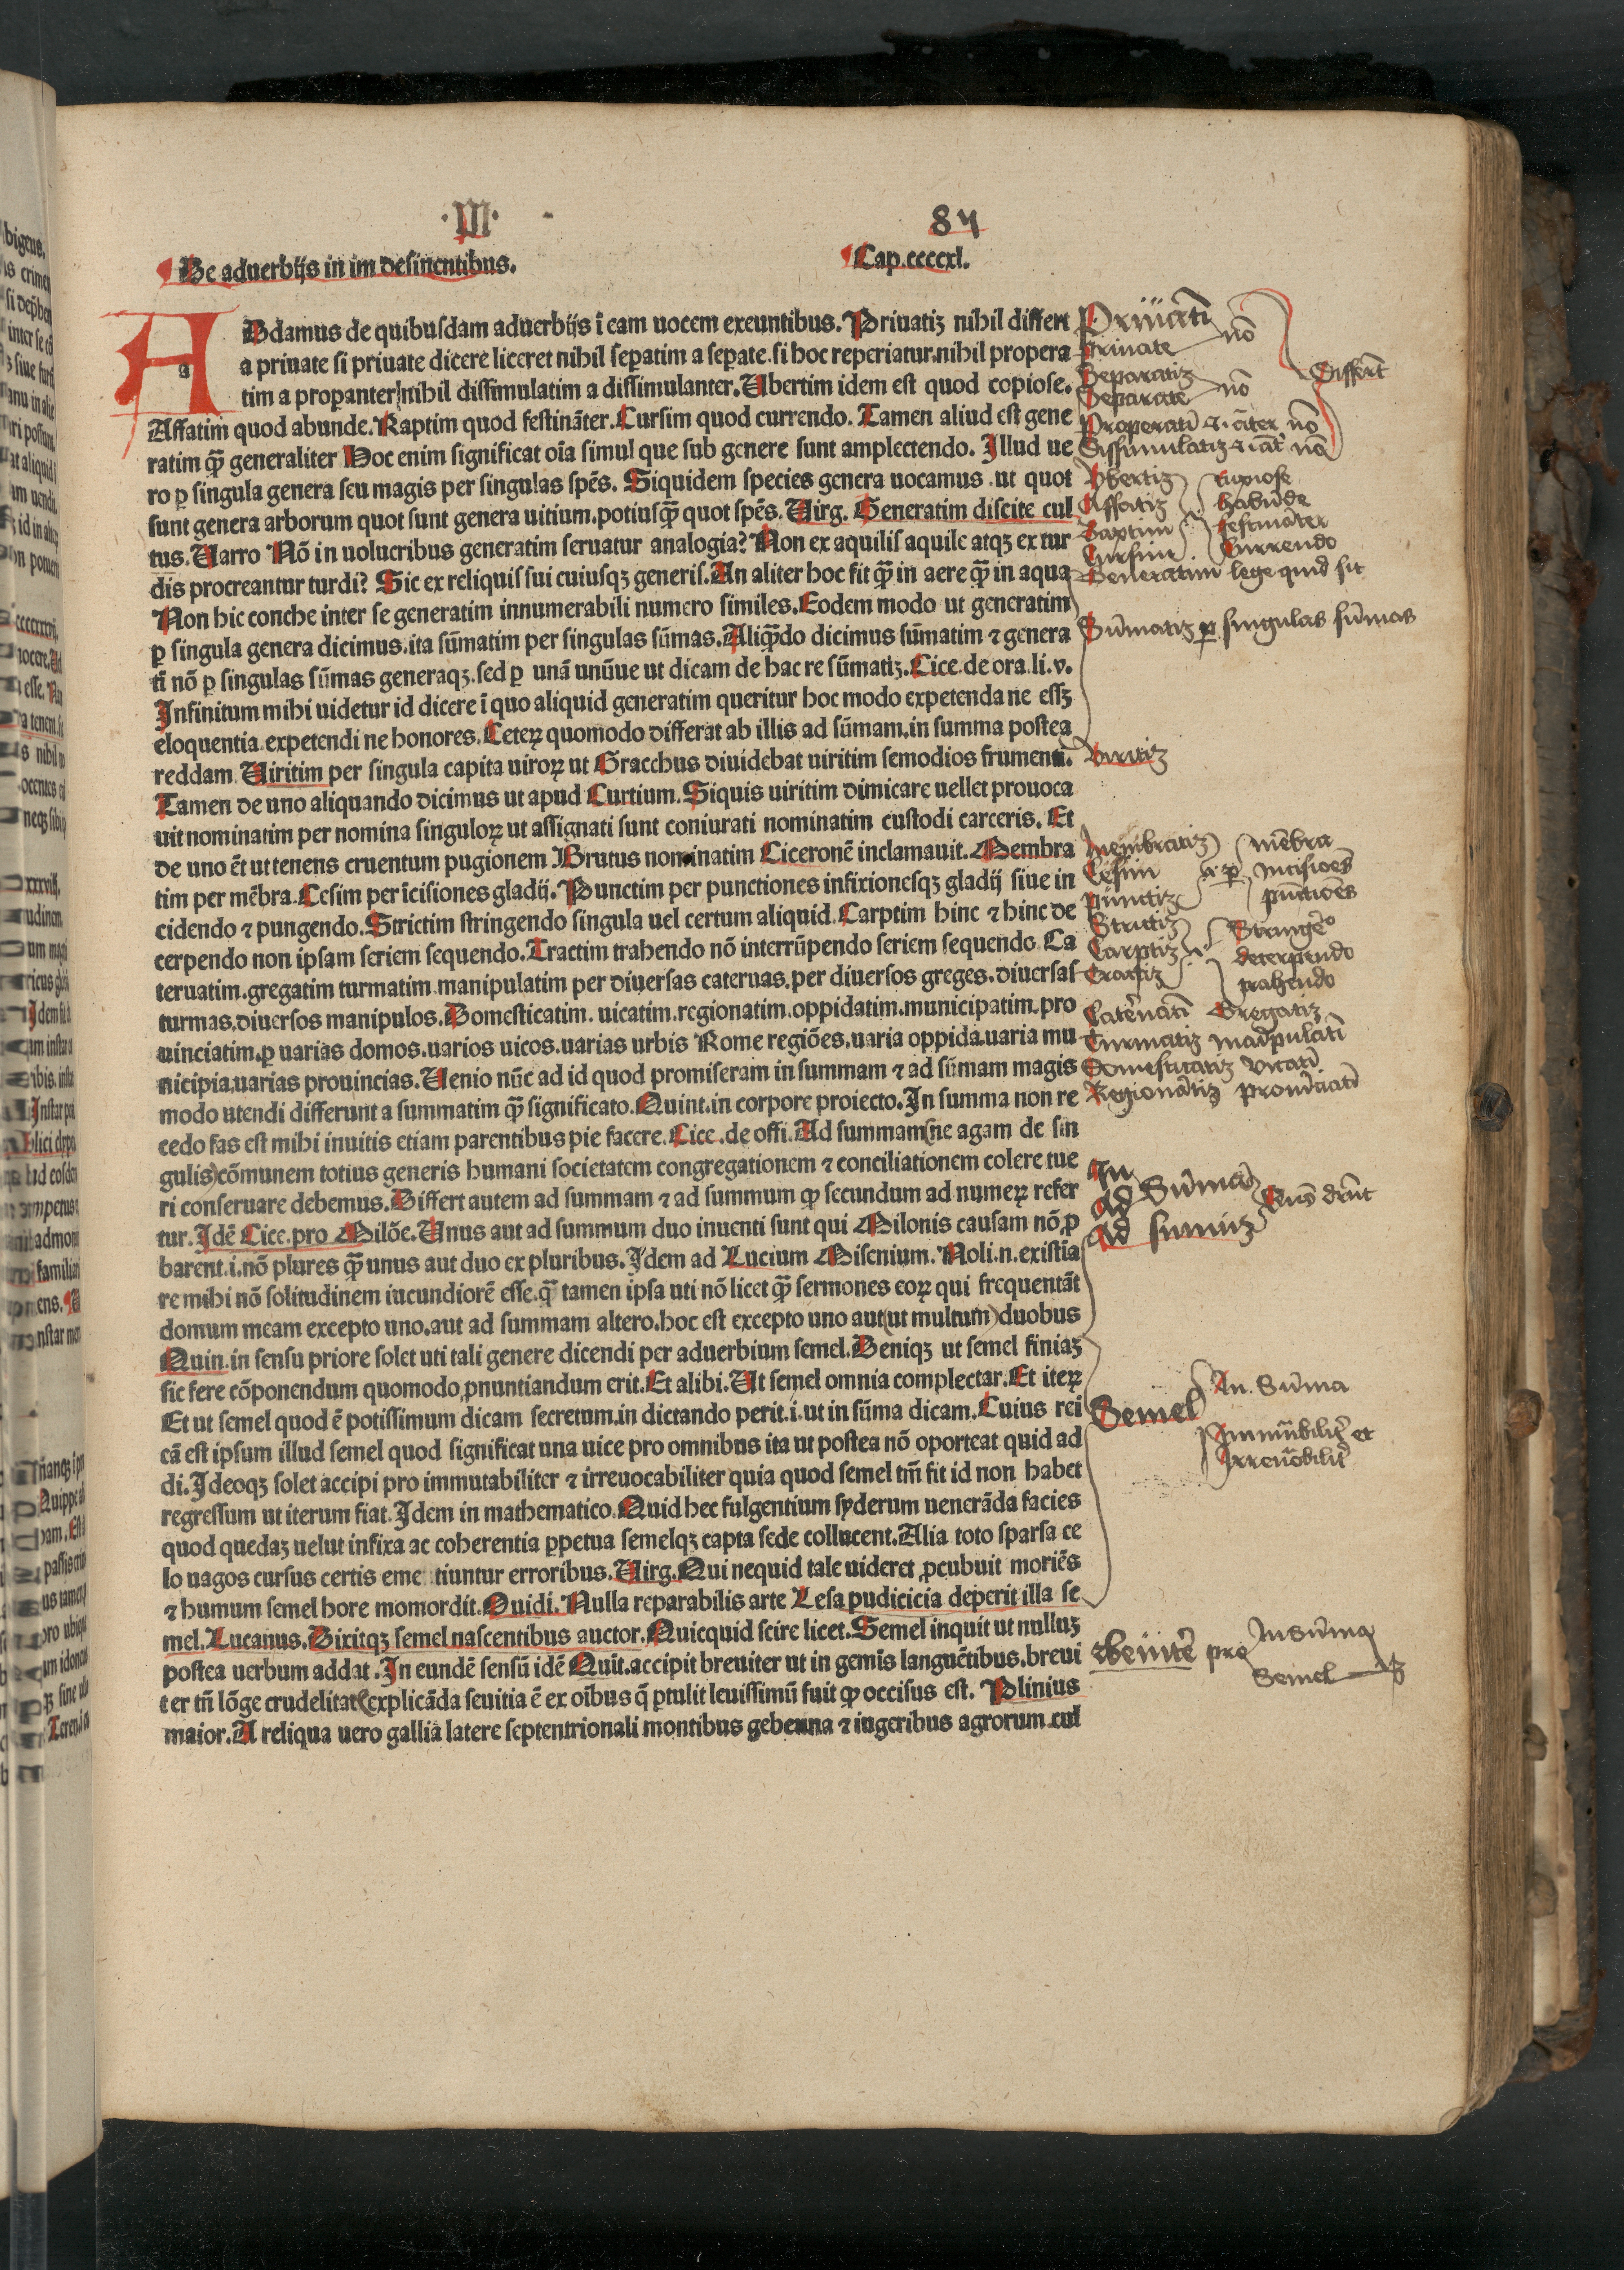 ·III· 84
De aduerbijs in im desinentibus. Cap.ccccxl.
ADdamus de quibusdam aduerbijs ī eam uocem exeuntibus. Priuatiꝫ nihil differt
a priuate si priuate dicere liceret nihil seꝑatim a seꝑate. si hoc reperiatur. nihil propera
tim a proꝑanter nihil dissimulatim a dissimulanter. Ubertim idem est quod copiose.
Affatim quod abunde. Raptim quod festināter. Cursim quod currendo. Tamen aliud est gene
ratim qȝ̄ generaliter Hoc enim significat oīa simul que sub genere sunt amplectendo. Illud ue
ro ꝑ singula genera seu magis per singulas spēs. Siquidem species genera uocamus ut quot
sunt genera arborum quot sunt genera uitium. potiusqȝ̄ quot spēs. Uirg. Generatim discite cul
tus. Uarro Nō in uolucribus generatim seruatur analogia? Non ex aquilis aquile atqꝫ ex tur
dis procreantur turdi? Sic ex reliquis sui cuiusqꝫ generis. An aliter hoc fit qȝ̄ in aere qȝ̄ in aqua
Non hic conche inter se generatim innumerabili numero similes. Eodem modo ut generatim
ꝑ singula genera dicimus. ita sūmatim per singulas sūmas. Aliqȝ̄do dicimus sūmatim ⁊ genera
tī nō ꝑ singulas sūmas generaqꝫ. sed ꝑ unā unūue ut dicam de hac re sūmatiꝫ. Cice. de ora. li. v.
Infinitum mihi uidetur id dicere ī quo aliquid generatim queritur hoc modo expetenda ne essꝫ
eloquentia expetendi ne honores. Ceteꝝ quomodo differat ab illis ad sūmam, in summa postea
reddam. Uiritim per singula capita uiroꝝ ut Gracchus diuidebat uiritim semodios frumenti.
Tamen de uno aliquando dicimus ut apud Curtium. Siquis uiritim dimicare uellet prouoca
uit nominatim per nomina singuloꝝ ut assignati sunt coniurati nominatim custodi carceris. Et
de uno ēt ut tenens cruentum pugionem Brutus nominatim Ciceronē inclamauit. Membra
tim per mēbra. Cesim per īcisiones gladij. Punctim per punctiones infixionesqꝫ gladij siue in
cidendo ⁊ pungendo. Strictim stringendo singula uel certum aliquid. Carptim hinc ⁊ hinc de
cerpendo non ipsam seriem sequendo. Tractim trahendo nō interrūpendo seriem sequendo. Ca
teruatim. gregatim turmatim. manipulatim per diuersas cateruas. per diuersos greges. diuersas
turmas. diuersos manipulos. Domesticatim. uicatim. regionatim. oppidatim. municipatim. pro
uinciatim. ꝑ uarias domos. uarios uicos. uarias urbis Rome regiōes. uaria oppida. uaria mu
nicipia. uarias prouincias. Uenio nūc ad id quod promiseram in summam ⁊ ad sūmam magis
modo utendi differunt a summatim qȝ̄ significato. Quint. in corpore proiecto. In summa non re
cedo fas est mihi inuitis etiam parentibus pie facere. Cice. de offi. Ad summam (ne agam de sin
gulis) cōmunem totius generis humani societatem congregationem ⁊ conciliationem colere tue
ri conseruare debemus. Differt autem ad summam ⁊ ad summum ꝙ secundum ad numeꝝ refer
tur. Idē Cice. pro Milōe. Unus aut ad summum duo inuenti sunt qui Milonis causam nō ꝓ
barent. i. nō plures qȝ̄ unus aut duo ex pluribus. Idem ad Lucium Misenium. Noli. n. existīa
re mihi nō solitudinem iucundiorē esse. q̄ tamen ipsa uti nō licet qȝ̄ sermones eoꝝ qui frequentāt
domum meam excepto uno. aut ad summam altero. hoc est excepto uno aut (ut multum) duobus
Quin. in sensu priore solet uti tali genere dicendi per aduerbium semel. Deniqꝫ ut semel finiaꝫ
sic fere cōponendum quomodo ꝓnuntiandum erit. Et alibi. Ut semel omnia complectar. Et iteꝝ
Et ut semel quod ē potissimum dicam secretum. in dictando perit. i. ut in sūma dicam. Cuius rei
cā est ipsum illud semel quod significat una uice pro omnibus ita ut postea nō oporteat quid ad
di. Ideoqꝫ solet accipi pro immutabiliter ⁊ irreuocabiliter quia quod semel tm̄ fit id non habet
regressum ut iterum fiat. Idem in mathematico. Quid hec fulgentium syderum uenerāda facies
quod quedaꝫ uelut infixa ac coherentia ꝑpetua semelqꝫ capta sede collucent. Alia toto sparsa ce
lo uagos cursus certis eme tiuntur erroribus. Uirg. Qui nequid tale uideret ꝓcubuit moriēs
⁊ humum semel hore momordit. Ouidi. Nulla reparabilis arte Lesa pudicicia deperit illa se
mel. Lucanus. Dixitqꝫ semel nascentibus auctor. Quicquid scire licet. Semel inquit ut nulluꝫ
postea uerbum addat. In eundē sensū idē Quīt. accipit breuiter ut in gemīs languētibus. breui
ter tn̄ lōge crudelitate explicāda seuitia ē ex oībus q̄ ꝑtulit leuissimū fuit ꝙ occisus est. Plinius
maior. A reliqua uero gallia latere septentrionali montibus gebenna ⁊ iugeribus agrorum cul
Priuatī
Priuate nō
Separatiꝫ
Separate nō
Differūt
Properatī
Dissimulatiꝫ
Vbertiꝫ copiose
Affatiꝫ habūde
Raptim festināter
Cursim Currendo
Generatim lege quid sit
Sūmatiꝫ ꝑ singulas sūmas
Viritiꝫ
Membratiꝫ mēbra
Cesim incisioēs
punctiꝫ pūctioēs
Strictiꝫ
Carptiꝫ decerpendo
Tractiꝫ trahendo
Cateruatī Gregatiꝫ
Turmatiꝫ
Domesticatiꝫ vicatī
Regionatiꝫ prouīciatī
In
ad Sūmā
Ad sumūꝫ
Semel In Sūma
Immutabilit̄ et
Irreuocabilit̄
Breuit̄ pro In sūma
Semel